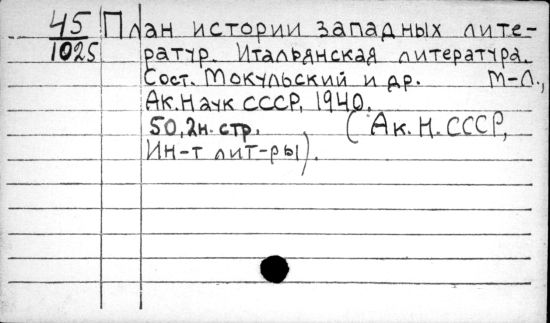 45 План истории западных лите-
1025 ратур. Итальянская литература.
Сост. Мокульский и др. М-Л.,
Ак. Наук СССР, 1940.
50,2н. стр. (Ак. Н. СССР,
Ин-т лит-ры).